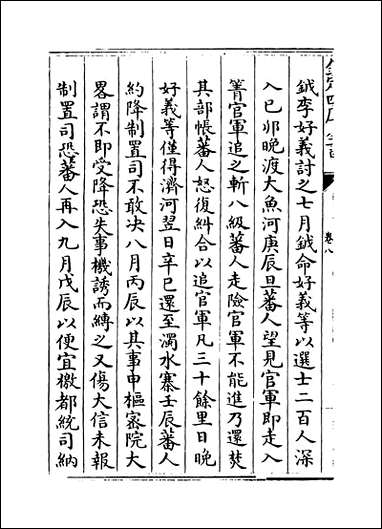 鉞李好義討之七月鉞命好義等以選士二百人深
入己卯晚渡大魚河庚辰旦蕃人望見官軍即走入
箐官軍追之斬八級蕃人走險官軍不能進乃還焚
其部帳蕃人怒復糾合以追官軍凡三十餘里日晚
好義等僅得濟河翌日辛巳還至濁水寨壬辰蕃人
約降制置司不敢决八月丙辰以其事申樞宻院大
畧謂不即受降恐失事機誘而縛之又傷大信未報
制置司恐蕃人再入九月戊辰以便宜檄都統司納
卷八